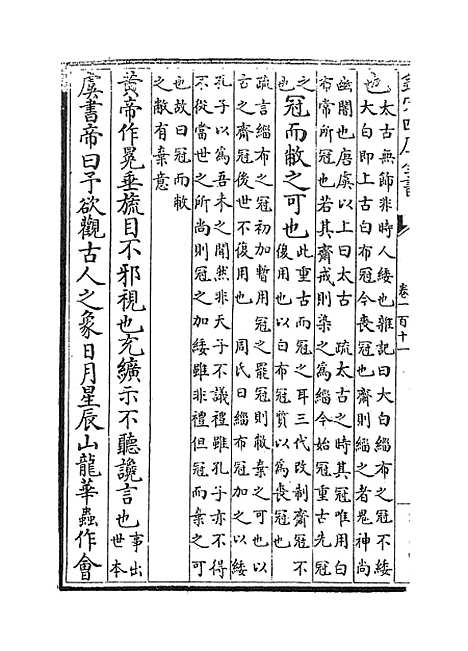 欽定四庫全書
卷一百十一
也太古無飾非時人緌也雜記曰大白緇布之冠不緌
大白即上古白布冠今喪冠也齋則緇之者鬼神尚
幽闇也唐虞以上曰太古　疏太古之時其冠唯用白
布常所冠也若其齋戒則染之為緇今始冠重古先冠
之
也
冠而敝之可也
此重古而冠之耳三代改制齋冠不
復用也以白布冠質以為喪冠也
疏言緇布之冠初加暫用冠之罷冠則敝棄之可也以
古之齋冠後世不復用也　周氏曰緇布冠加之以緌
孔子以為吾未之聞然非天子不議禮雖孔子亦不得
不從當世之所尚則冠之加緌雖非禮但冠而棄之可
也故曰冠而敝
之敝有棄意
黃帝作冕垂旒目不邪視也充纊示不聽讒言也
事出
世本
虞書帝曰予欲觀古人之象日月星辰山龍華蟲作會